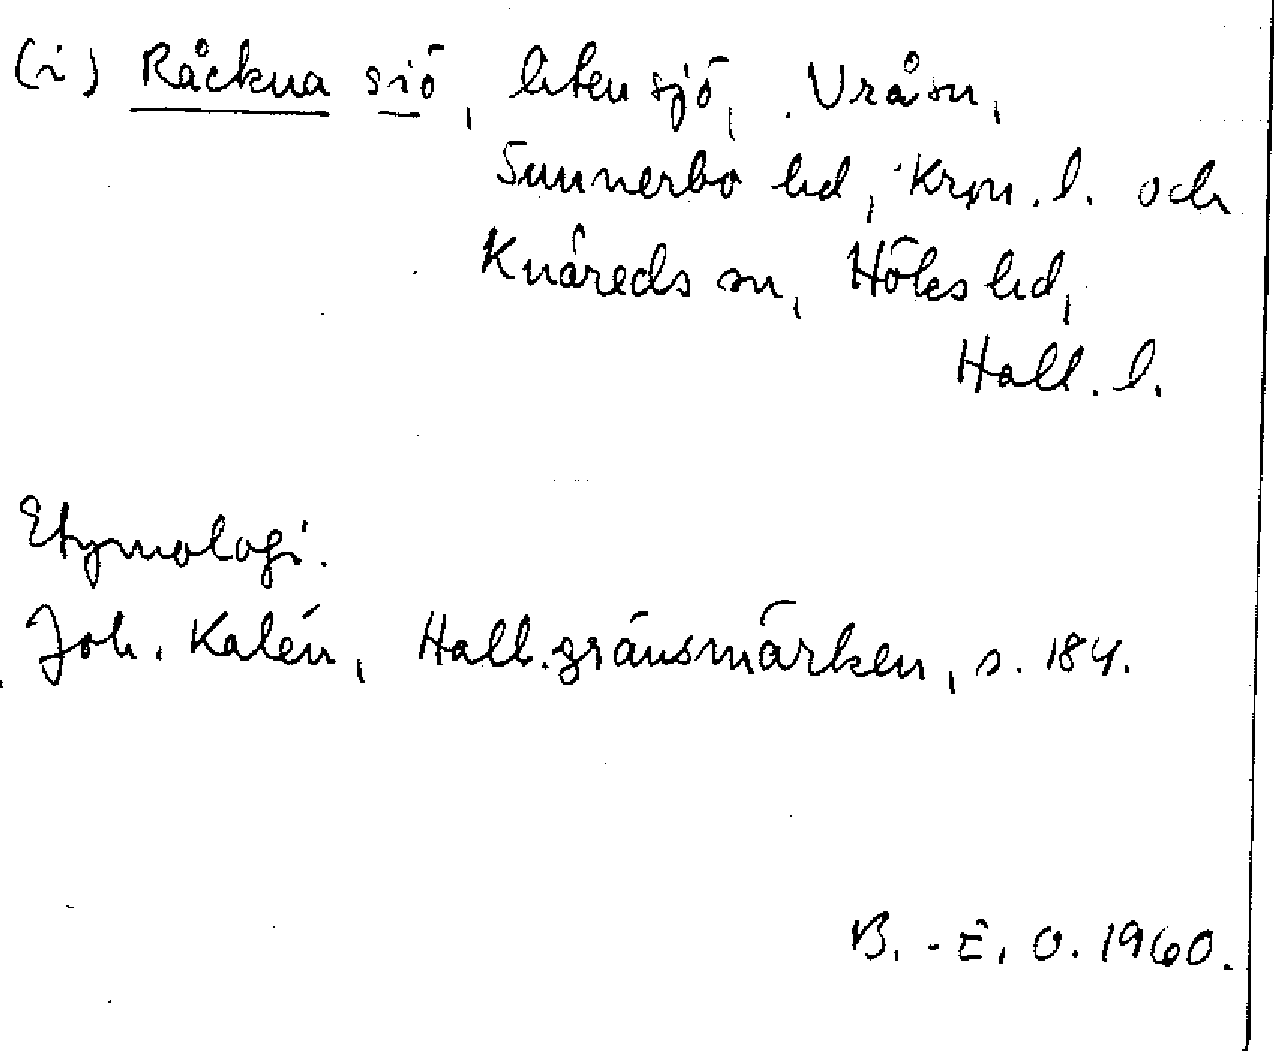 (i) Råckna siö, liten sjö, Vrå sn,
Sunnerbo hd, Kron. l. och
Knäreds sn, Höks hd,
Hall. l.
Etymologi.
Joh. Kalén, Hall. gränsmärken, s. 184.
B.-E. O. 1960.